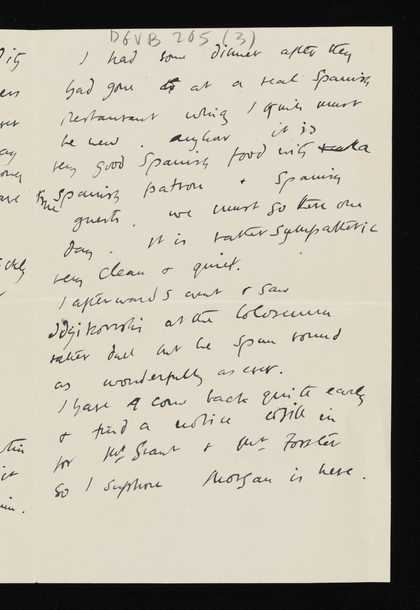 DGVB 205 (3)
I had some dinner after they
had gone at a real Spanish
restaurant which I think must
be new. anyhow it is
very good Spanish food with a
Spanish patron + Spanish
guests. we must go there one
day. it is rather sympathetic
very clean + quiet.
I afterwards went + saw
at the Coloseum
rather dull but he spun round
as wonderfully as ever.
I have come back quite early
+ find a notice in
for Mr Grant + Mr Forster
so I suppose Morgan is here.